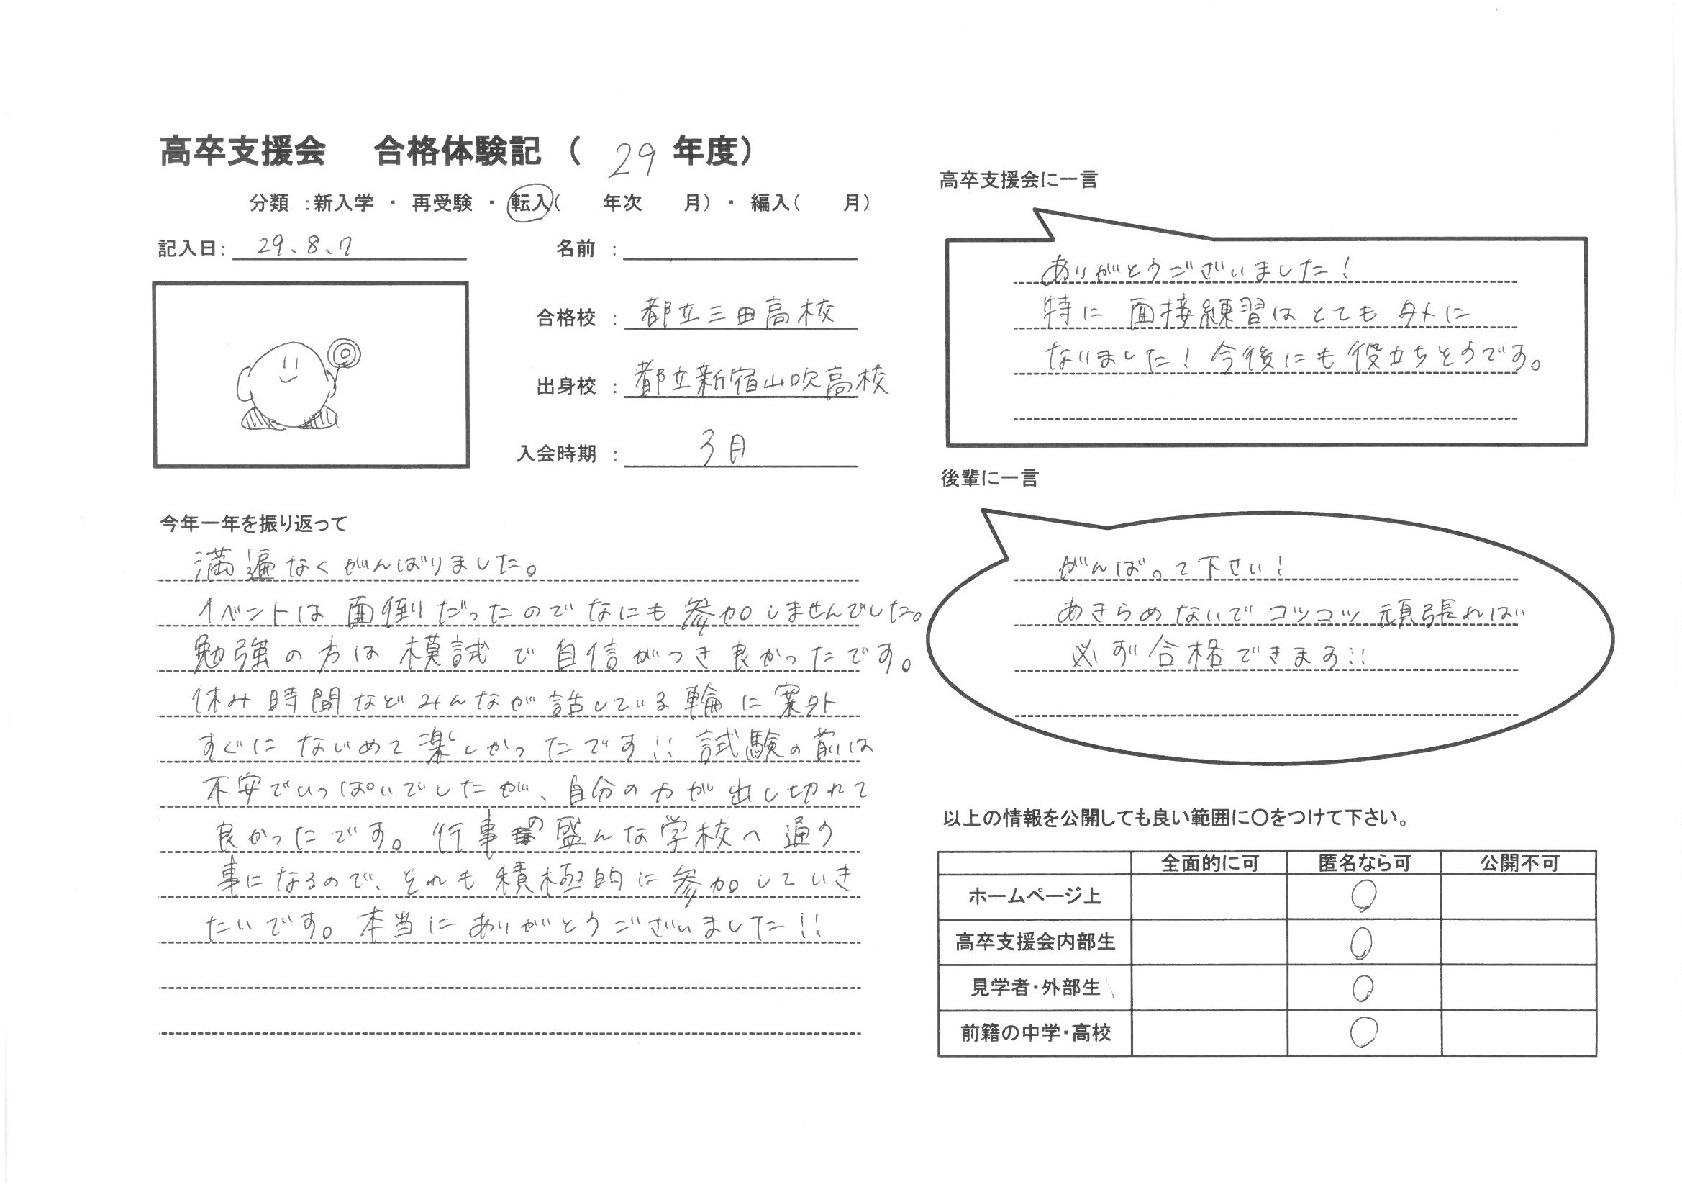 高卒支援会 合格体験記 ( 29 年度)
分類 :新入学 ・ 再受験 ・ 転入( 年次 月) ・ 編入( 月)
記入日: 29.8.7
名前 :
合格校 : 都立三田高校
出身校 : 都立新宿山吹高校
入会時期 : 3月
今年一年を振り返って
満遍なくがんばりました。
イベントは面倒だったのでなにも参加しませんでした。
勉強の方は模試で自信がつき良かったです。
休み時間などみんなが話している輪に案外
すぐに
楽しかったです!! 試験の前は
不安でいっぱいでしたが、自分の力が出し切れて
良かったです。行事の盛んな学校へ通う
事になるので、それも積極的に参加していき
たいです。本当にありがとうございました!!
高卒支援会に一言
ありがとうございました!
特に面接練習はとても
に
なりました! 今後にも役立ちそうです。
後輩に一言
がんばって下さい!
あきらめないでコツコツ頑張れば
必ず合格できます!!
以上の情報を公開しても良い範囲に〇をつけて下さい。
全面的に可 匿名なら可 公開不可
ホームページ上 〇
高卒支援会内部生 〇
見学者・外部生 〇
前籍の中学・高校 〇